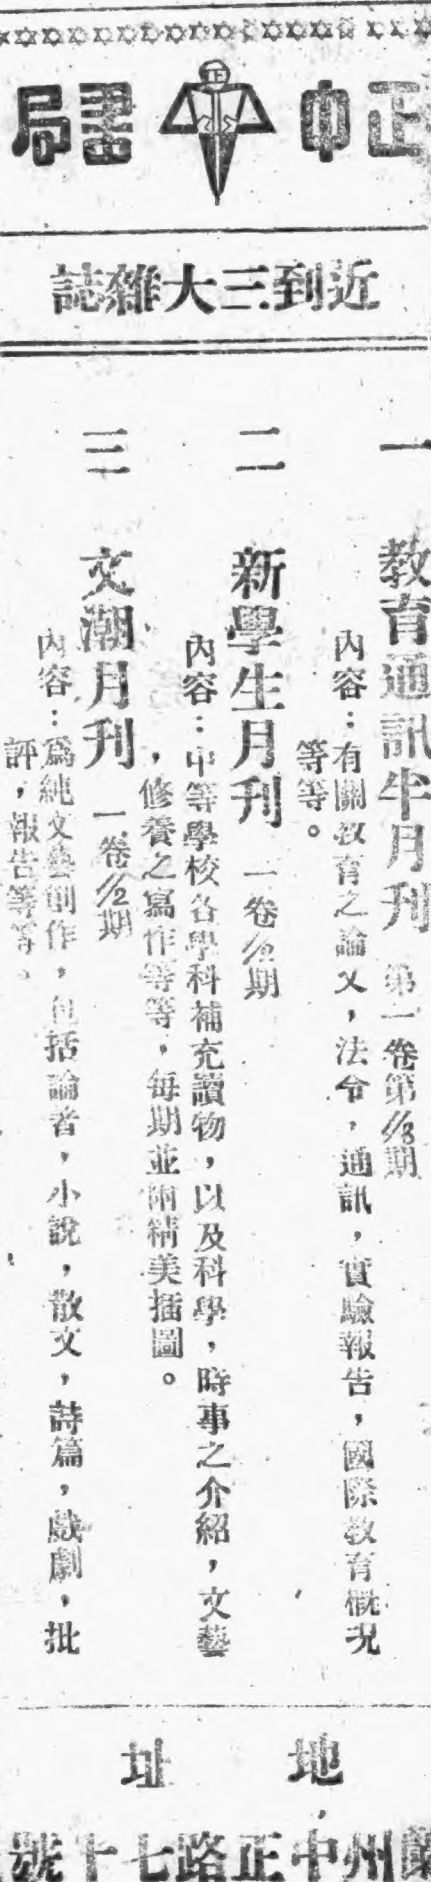 正中書局
正
近到三大雜誌
一 教育通訊半月刊 第一卷第1/3期
內容：有關教育之論文，法令，通訊，實驗報告，國際教育概況
等等。
二 新學生月刊 一卷 期
內容：中等學校各學科補充讀物，以及科學，時事之介紹，文藝
，修養之寫作等等，每期並附精美插圖。
三 文潮月刊 一卷1/2期
內容：爲純文藝創作，包括論著，小說，散文，詩篇，戲劇，批
評，報告等等。
地址
蘭州中正路七十號